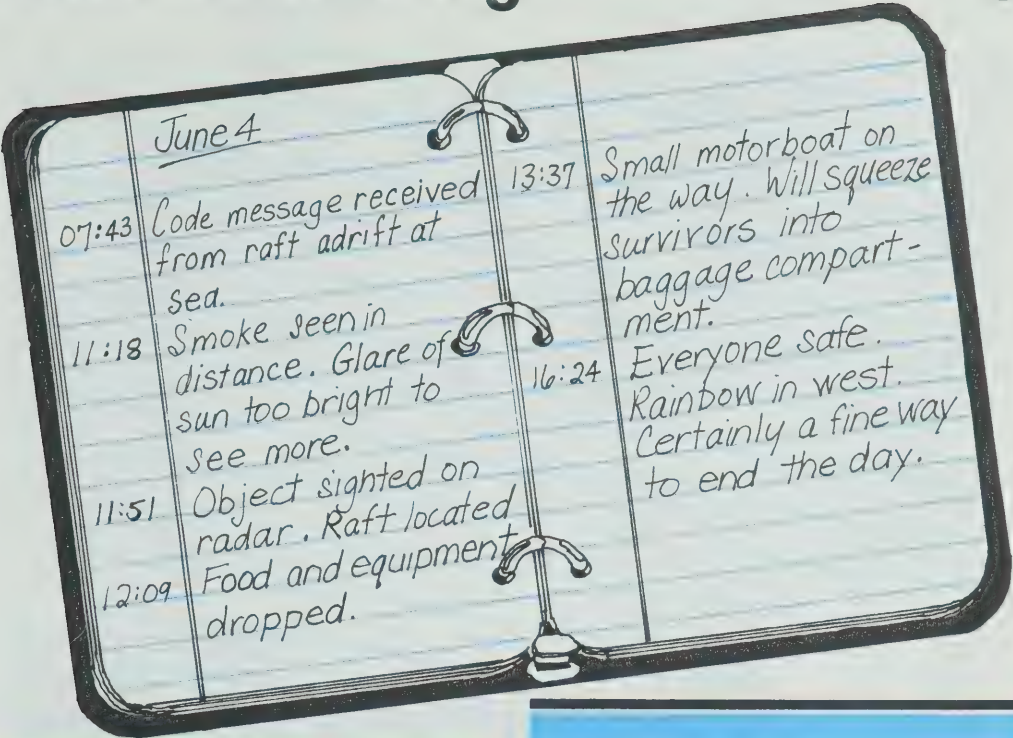 June 4
07:43 Code message received
from raft adrift at
sea.
11:18 Smoke seen in
distance. Glare of
sun too bright to
see more.
11:51 Object sighted on
radar. Raft located
12:09 Food and equipment
dropped.
13:37 Small motorboat on
the way. Will squeeze
survivors into
baggage compart-
ment.
16:24 Everyone safe.
Rainbow in west.
Certainly a fine way
to end the day.